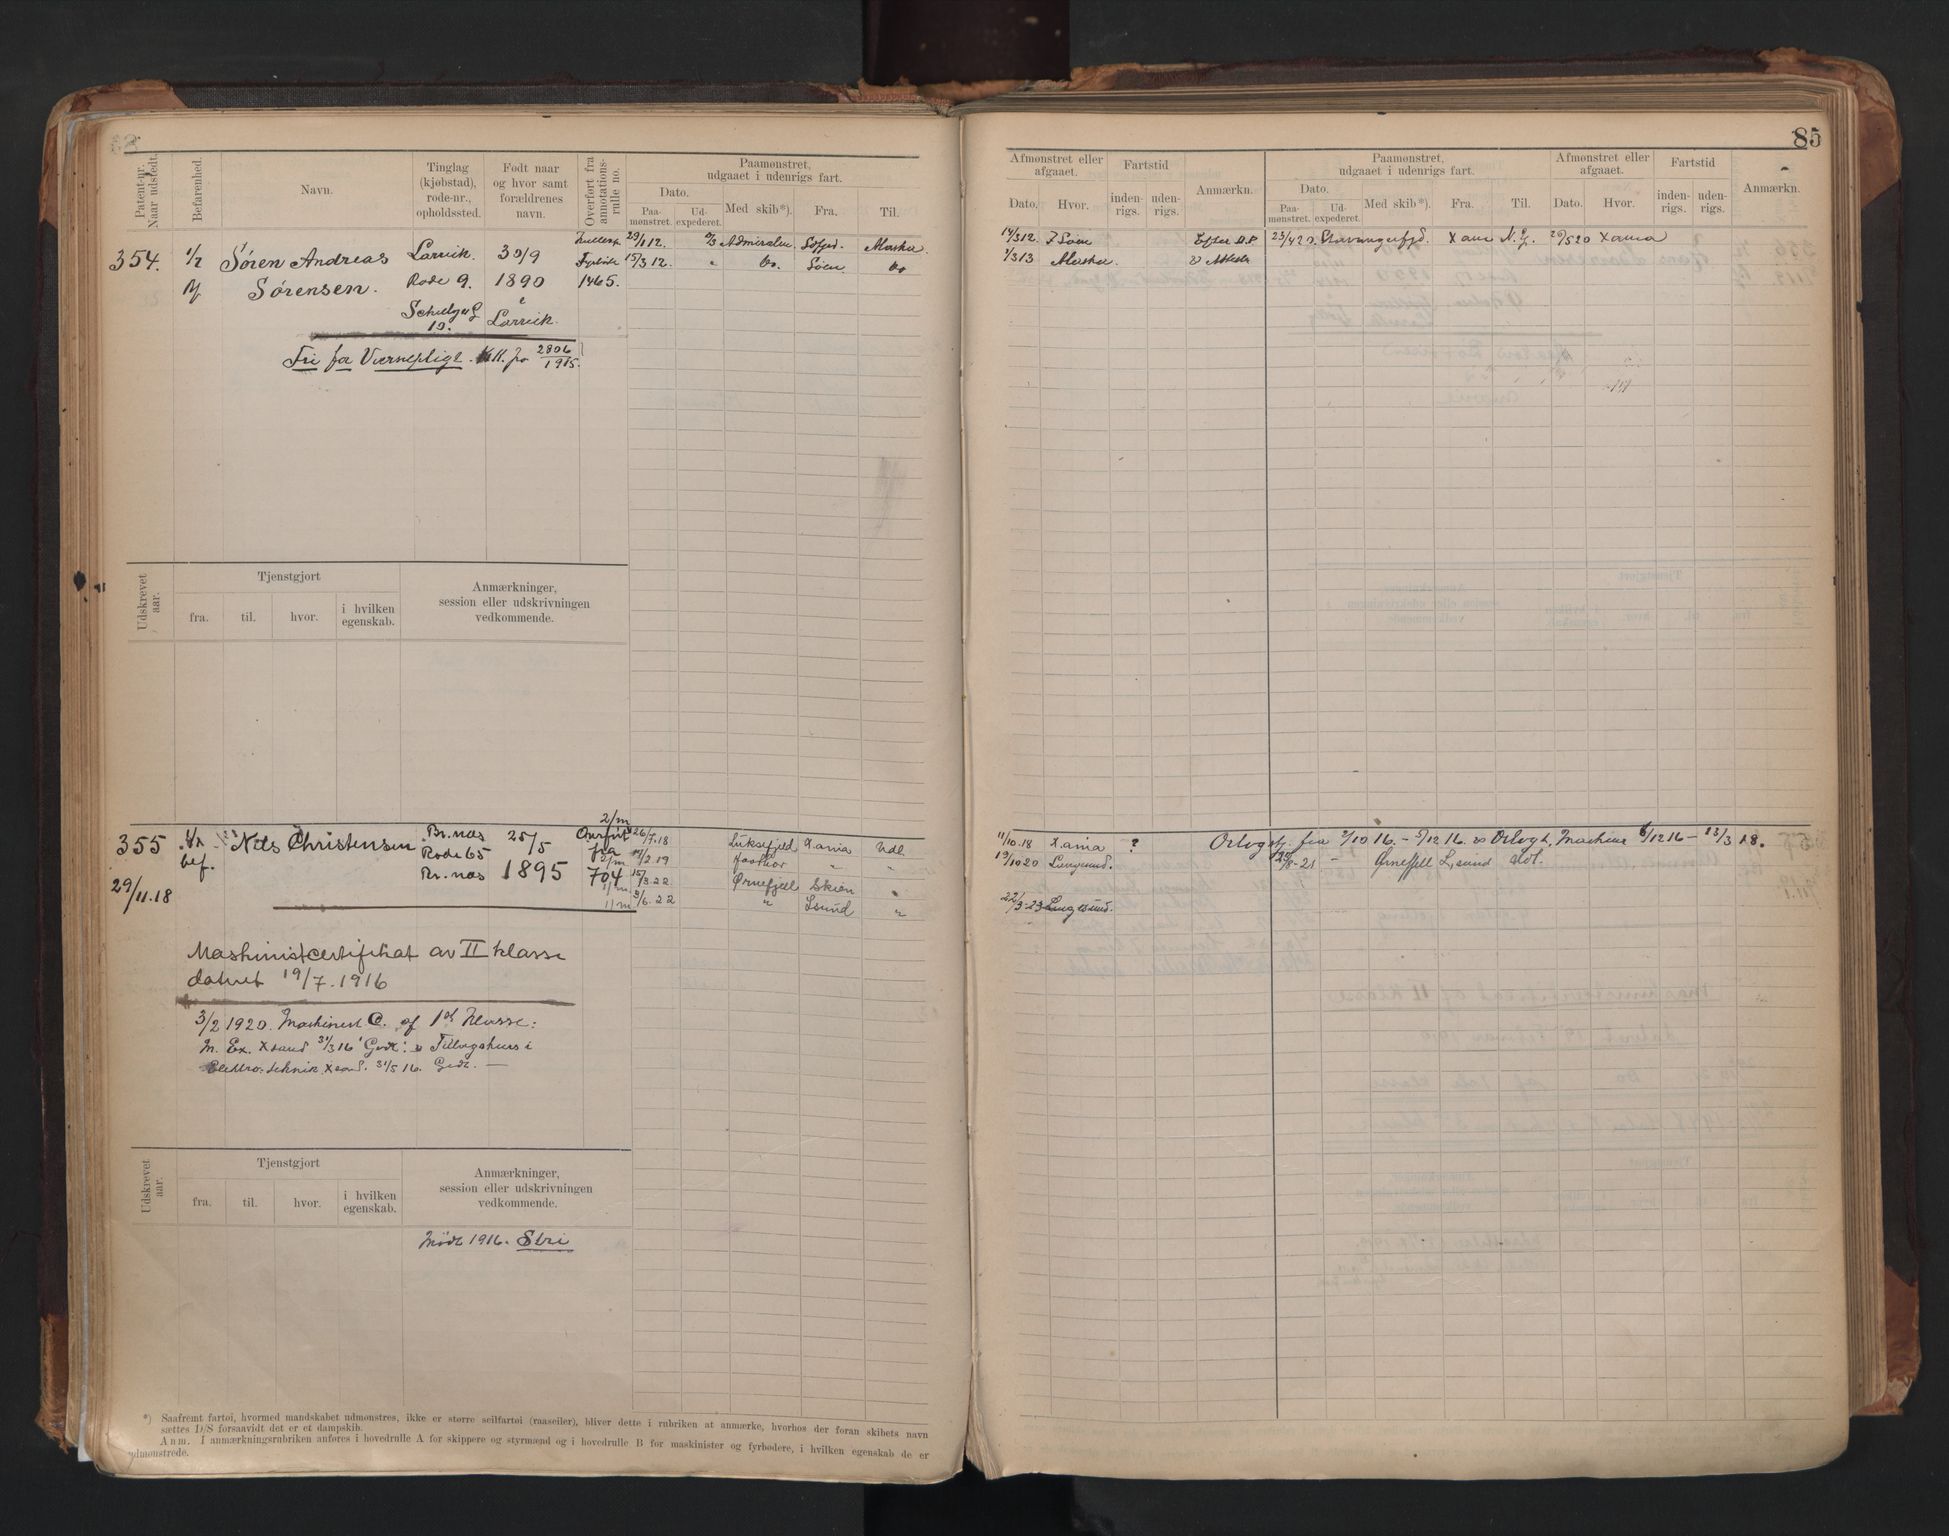 85
Patent-nr. Naar udstedt.
Befarenhed.
Navn.
Tinglag (kjøbstad), rode-nr., opholdssted.
Født naar og hvor samt forældrenes navn.
Overført fra annotations-rulle no.
Paamønstret, udgaaet i udenrigs fart.
Dato.
Paa-mønstret.
Ud-expederet.
Med skib*).
Fra.
Til.
Afmønstret eller afgaaet.
Dato.
Hvor.
Fartstid
inden-rigs.
uden-rigs.
Anmærkn.
Paamønstret, udgaaet i udenrigs fart.
Dato.
Paa-mønstret.
Ud-expederet.
Med skib*).
Fra.
Til.
Afmønstret eller afgaaet.
Dato.
Hvor.
Fartstid
inden-rigs.
uden-rigs.
Anmærkn.
354. 1/2 Søren Andreas Larvik. 30/9 29/1 12. Admiralen Alaska
Sørensen. Rode 9. 1890 1465. 15/3 12. " Do. Søen Do
10. Larvik.
Fri for Værnepligt. 2806
1915.
14/3 12. Søen 23/4 20. Stavangerfjd. Xania N.Y. 20/5 20 Xania
2/3 13 Alaska
Udskrevet aar.
Tjenstgjort
fra.
til.
hvor.
i hvilken egenskab.
Anmærkninger, session eller udskrivningen vedkommende.
355 Nils Christensen Br.næs 25/5 2/m 26/7.18 Luksefjeld Xania Udl.
bef. Rode 65 fra 2/m
29/11.18 Br.næs 1895 704 15/3.22 Ørnefjell Skien "
9/6.22 " Lsund "
11/10.18 Xania ? Orlogstj. fra 2/10 16. – 5/12 16. Orlogt. 6/12 16 – 23/3 18.
19/10 20 Langesund. Ørnefjell Lsund
22/3-23 Langesund.
Maskinistcertifikat av II klasse
datert 19/7. 1916
3/2 1920. Maskinist C. af 1st klasse:
M. Ex. Xsand 31/3 16 Godt: Tillægskurs i
Elektro-teknik Xsand. 31/5 16. Godt. —
Udskrevet aar.
Tjenstgjort
fra.
til.
hvor.
i hvilken egenskab.
Anmærkninger, session eller udskrivningen vedkommende.
Mødt 1916.
*) Saafremt fartøi, hvormed mandskabet udmønstres, ikke er større seilfartøi (raaseiler), bliver dette i rubriken at anmærke, hvorhos der foran skibets navn
sættes D/S forsaavidt det er et dampskib.
Anm. I anmærkningsrubriken anføres i hovedrulle A for skippere og styrmænd og i hovedrulle B for maskinister og fyrbødere, i hvilken egenskab de er
udmønstrede.